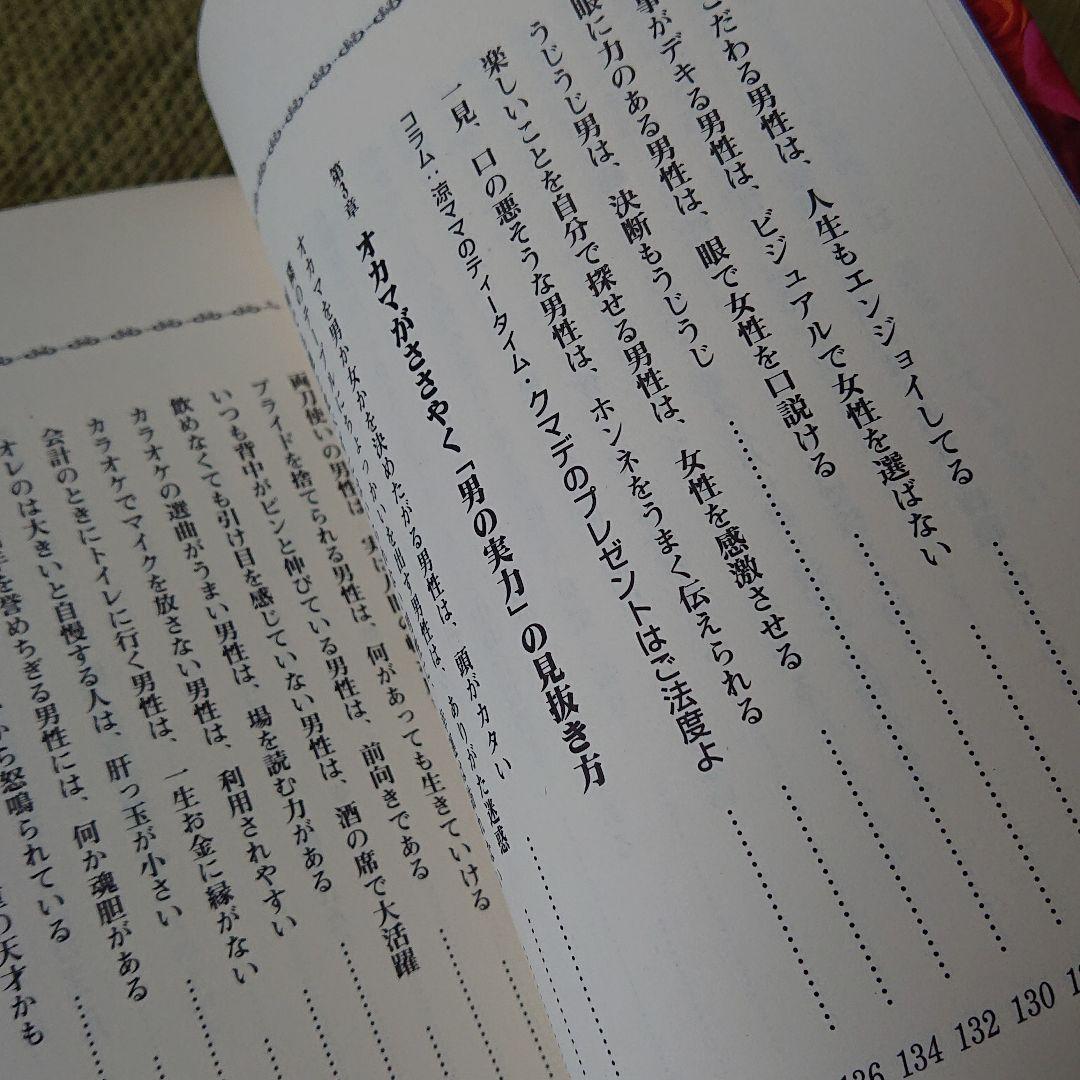 だわる男性は、人生もエンジョイしてる
事がデキる男性は、ビジュアルで女性を選ばない
眼に力のある男性は、眼で女性を口説ける
うじうじ男は、決断もうじうじ
楽しいことを自分で探せる男性は、女性を感激させる
一見、口の悪そうな男性は、ホンネをうまく伝えられる
コラム:涼ママのティータイム・クマデのプレゼントはご法度よ
130
132
134
第3章 オカマがささやく「男の実力」の見抜き方
オカマを男か女かを決めたがる男性は、頭がカタい
ちょっかいを出す男性は、ありがた迷惑
両刀使いの男性は
プライドを捨てられる男性は、何があっても生きていける
いつも背中がピンと伸びている男性は、前向きである
飲めなくても引け目を感じていない男性は、酒の席で大活躍
カラオケの選曲がうまい男性は、場を読む力がある
カラオケでマイクを放さない男性は、利用されやすい
会計のときにトイレに行く男性は、一生お金に縁がない
オレのは大きいと自慢する人は、肝っ玉が小さい
を誉めちぎる男性には、何か魂胆がある
ら怒鳴られている
の天才かも